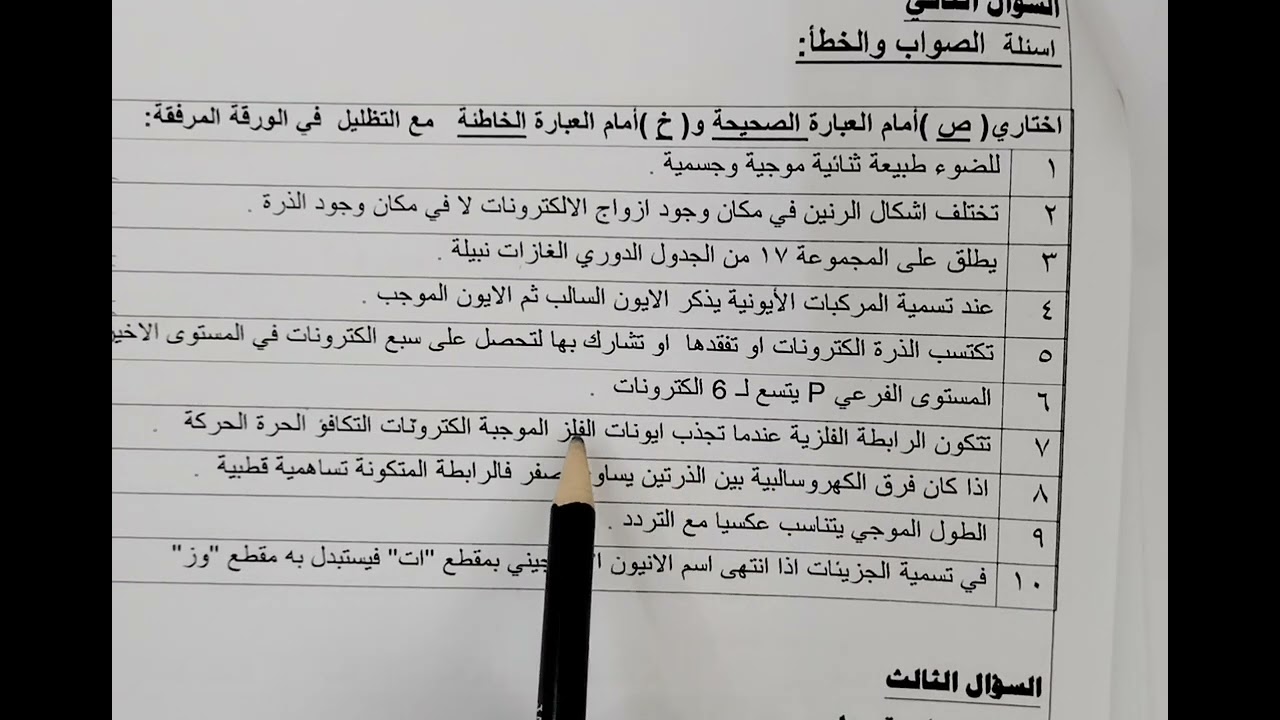 السؤال الثاني
اسئلة الصواب والخطأ:
اختاري( ص )أمام العبارة الصحيحة و( خ )أمام العبارة الخاطئة مع التظليل في الورقة المرفقة:
١ للضوء طبيعة ثنائية موجية وجسمية .
٢ تختلف اشكال الرنين في مكان وجود ازواج الالكترونات لا في مكان وجود الذرة .
٣ يطلق على المجموعة ١٧ من الجدول الدوري الغازات نبيلة .
٤ عند تسمية المركبات الأيونية يذكر الايون السالب ثم الايون الموجب .
٥ تكتسب الذرة الكترونات او تفقدها او تشارك بها لتحصل على سبع الكترونات في المستوى الاخير
٦ المستوى الفرعي P يتسع لـ 6 الكترونات .
٧ تتكون الرابطة الفلزية عندما تجذب ايونات الفلز الموجبة الكترونات التكافؤ الحرة الحركة .
٨ اذا كان فرق الكهروسالبية بين الذرتين يساوي صفر فالرابطة المتكونة تساهمية قطبية .
٩ الطول الموجي يتناسب عكسيا مع التردد .
١٠ في تسمية الجزيئات اذا انتهى اسم الانيون بمقطع "ات" فيستبدل به مقطع "وز"
السؤال الثالث